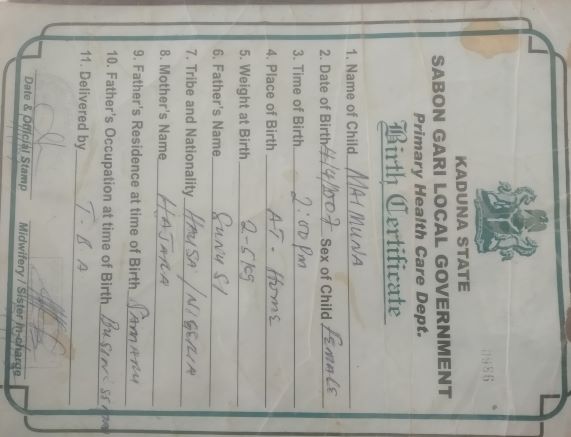 0986
KADUNA STATE
SABON GARI LOCAL GOVERNMENT
Primary Health Care Dept.
Birth Certificate
1. Name of Child MAIMUNA
2. Date of Birth 4/4/2007 Sex of Child FEMALE
3. Time of Birth 2:00pm
4. Place of Birth AT- HOME
5. Weight at Birth 2-5kg
6. Father's Name SUNUSI
7. Tribe and Nationality HAUSA /NIGERIA
8. Mother's Name
9. Father's Residence at time of Birth SAMARU
10. Father's Occupation at time of Birth
11. Delivered by T. B A
Date & Official Stamp Midwifery / Sister in-charge